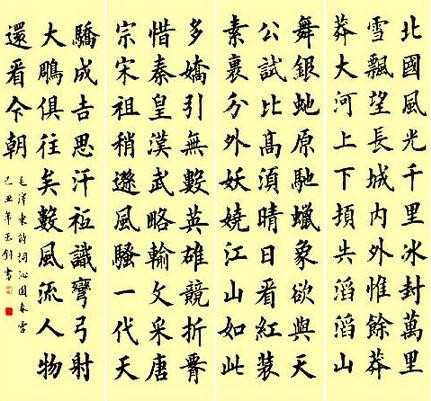 北國風光千里冰封萬里
雪飄望長城內外惟餘莽
莽大河上下頓失滔滔山
舞銀虵原馳蠟象欲與天
公試比高須晴日看紅裝
素裹分外妖嬈江山如此
多嬌引無數英雄競折腰
惜秦皇漢武略輸文采唐
宗宋祖稍遜風騷一代天
驕成吉思汗祗識彎弓射
大鵰俱往矣數風流人物
還看今朝
毛澤東詩詞沁園春雪
己丑年書